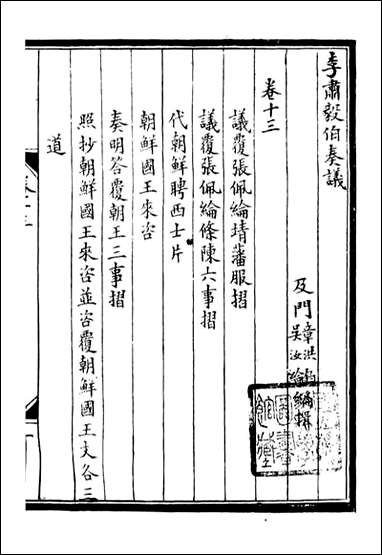 李肅毅伯奏議
及門章洪鈞
吳汝綸編輯
卷十三
議覆張佩綸靖藩服摺
議覆張佩綸條陳六事摺
代朝鮮聘西士片
朝鮮國王來咨
奏明答覆朝王三事摺
照抄朝鮮國王來咨並咨覆朝鮮國王文各三
道